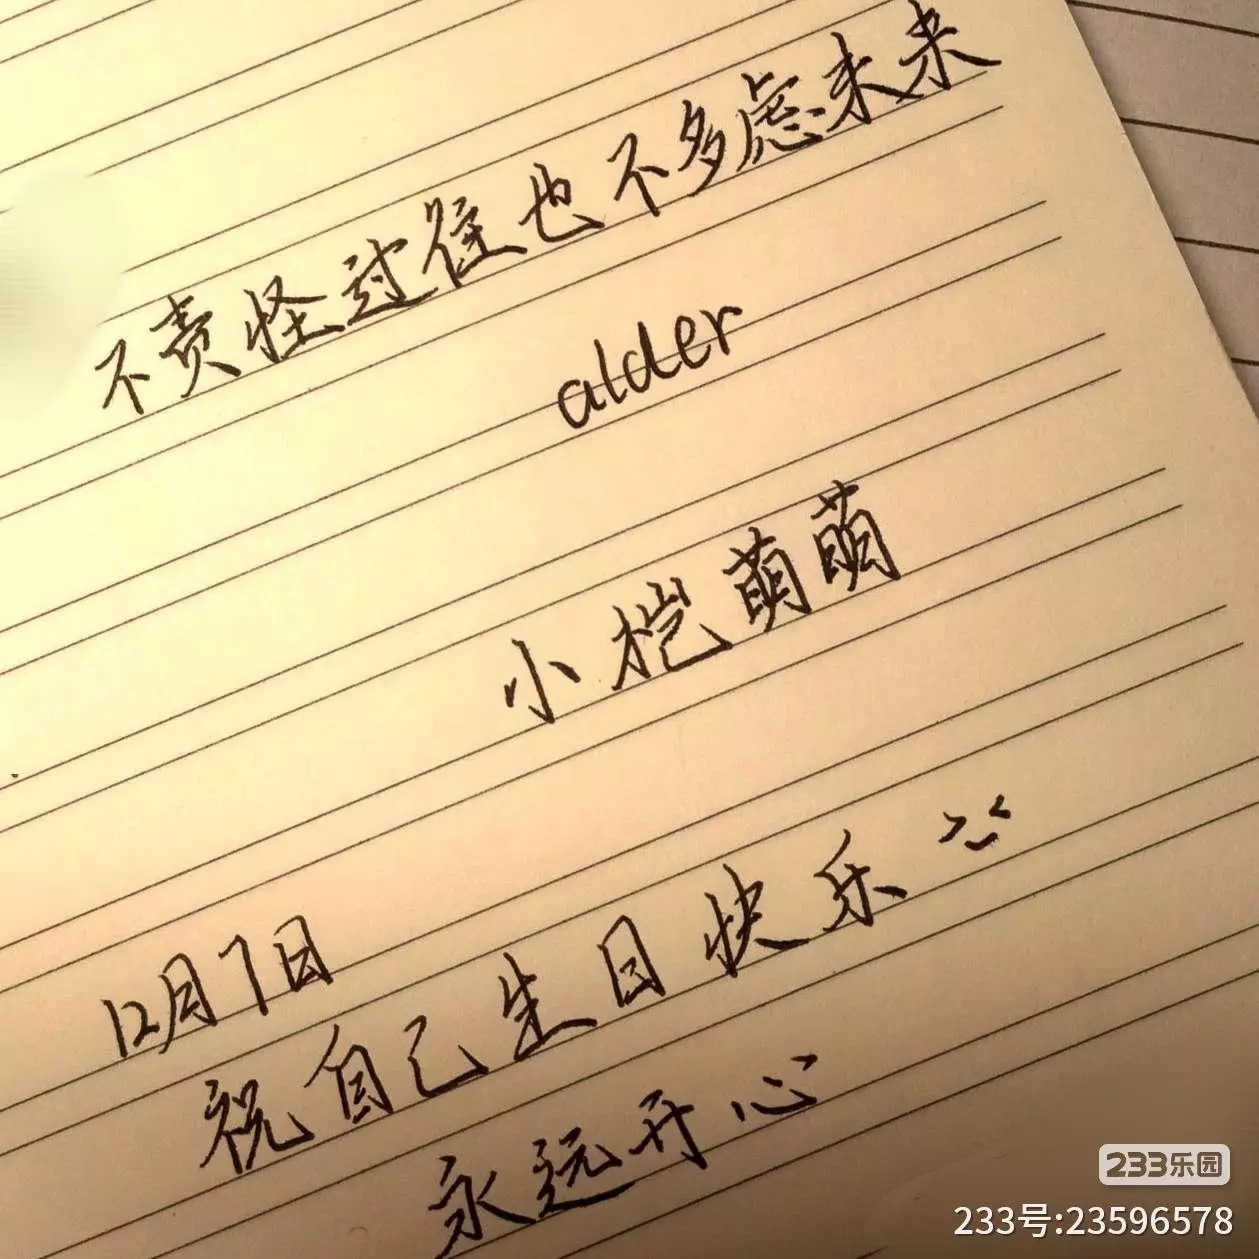 不责怪过往也不多虑未来
alder
小桤萌萌
12月7日
祝自己生日快乐
永远开心
233乐园
233号:23596578